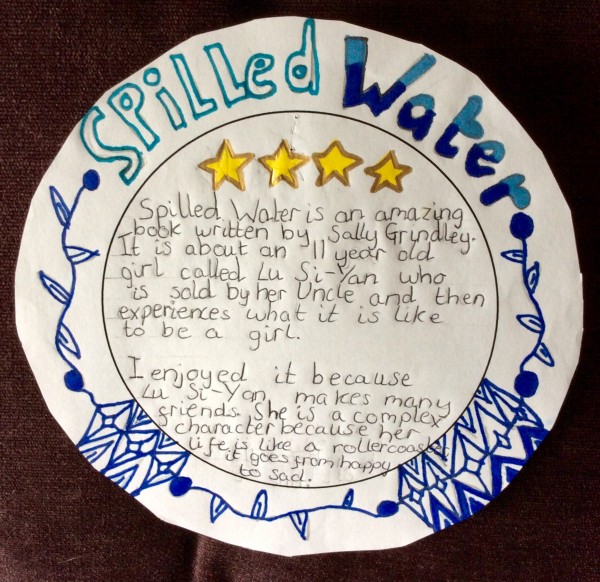 Spilled Water
Spilled Water is an amazing
book written by Sally Grindley.
It is about an 11 year old
girl called Lu Si-Yan who
is sold by her Uncle and then
experiences what it is like
to be a girl.
I enjoyed it because
Lu Si-Yan makes many
friends. She is a complex
character because her
life is like a rollercoaster
it goes from happy
to sad.